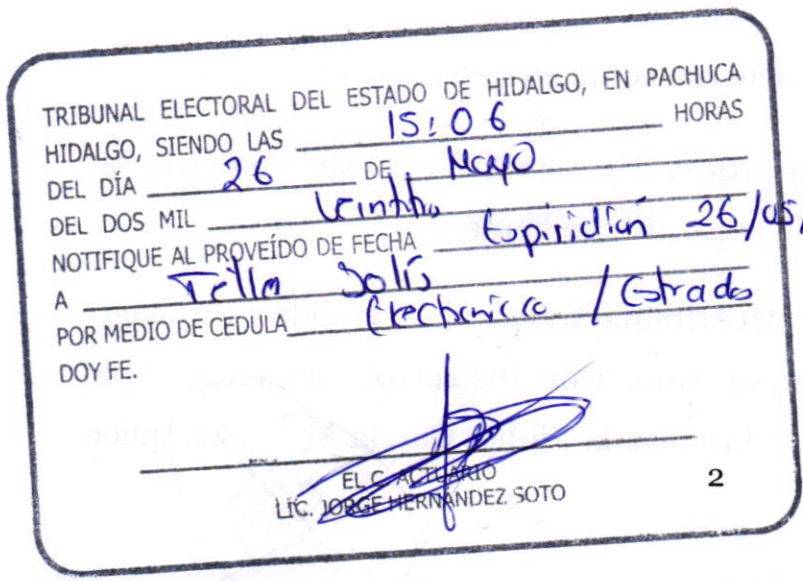 TRIBUNAL ELECTORAL DEL ESTADO DE HIDALGO, EN PACHUCA
HIDALGO, SIENDO LAS 15:06 HORAS
DEL DÍA 26 DE Mayo
DEL DOS MIL
NOTIFIQUE AL PROVEÍDO DE FECHA 26/05/
A Tella Solís
POR MEDIO DE CEDULA / Estrados
DOY FE.
EL C. ACTUARIO
LIC. JORGE HERNANDEZ SOTO
2